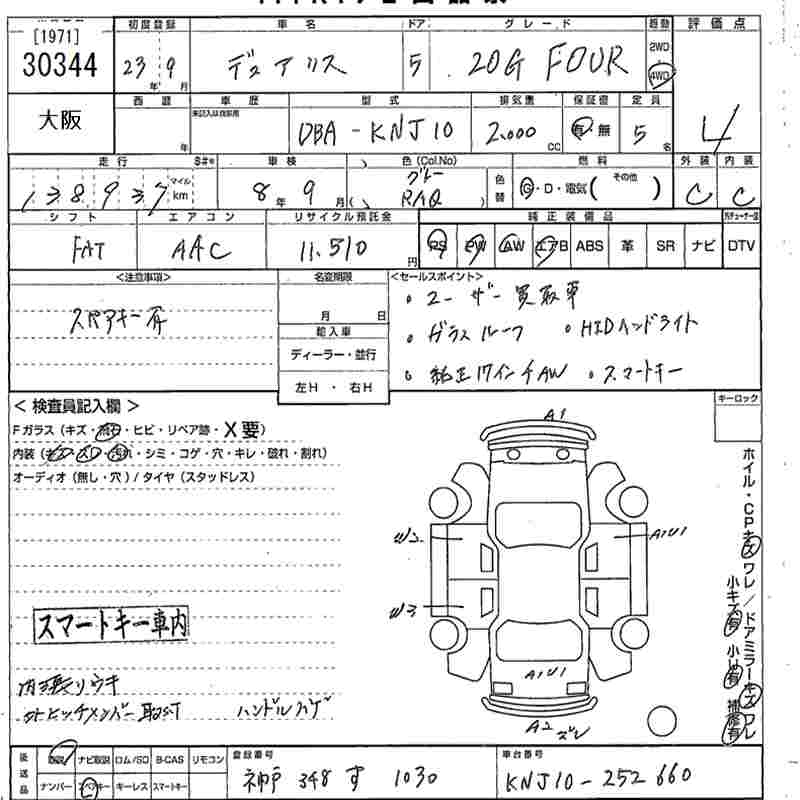 [1971]
30344
大阪
初度登録
23年 9月
車名
デュアリス
ドア
5
グレード
20G FOUR
駆動
2WD
4WD
評価点
4
西暦
年
車歴
未記入は自家用
型式
DBA-KNJ10
排気量
2.000 CC
保証書
有 無
定員
5名
走行
S#*
138937
マイル
km
車検
8年 9月
色(Col.No)
グレー
( RAQ )
色替
燃料
G・D・電気( その他 )
外装
C
内装
C
シフト
FAT
エアコン
AAC
リサイクル預託金
11.510円
純正装備品
PS PW AW エアB ABS 革 SR ナビ
DTV
<注意事項>
スペアキー有
名変期限
月 日
輸入車
ディーラー・並行
左H ・ 右H
<セールスポイント>
・ユーザー買取車
・ガラスルーフ ・HIDヘッドライト
・純正17インチAW ・スマートキー
キーロック
<検査員記入欄>
Fガラス(キズ・飛石・ヒビ・リペア跡・X要)
内装(キズ・スレ・汚れ・シミ・コゲ・穴・キレ・破れ・割れ)
オーディオ(無し・穴)/タイヤ(スタッドレス)
スマートキー車内
内張りウキ
外ヒッチメンバー取付 ハンドルハゲ
A1
W2
A1U1
W3
A1U1
A2 ズレ
ホイル・CPキズ ワレ/ドアミラーキズ ワレ
小キズ有 小U有 補修有
後送品
取説 ナビ取説 ロム/SD B-CAS リモコン
ナンバー スペアキー キーレス スマートキー
登録番号
神戸 348 す 1030
車台番号
KNJ10-252660